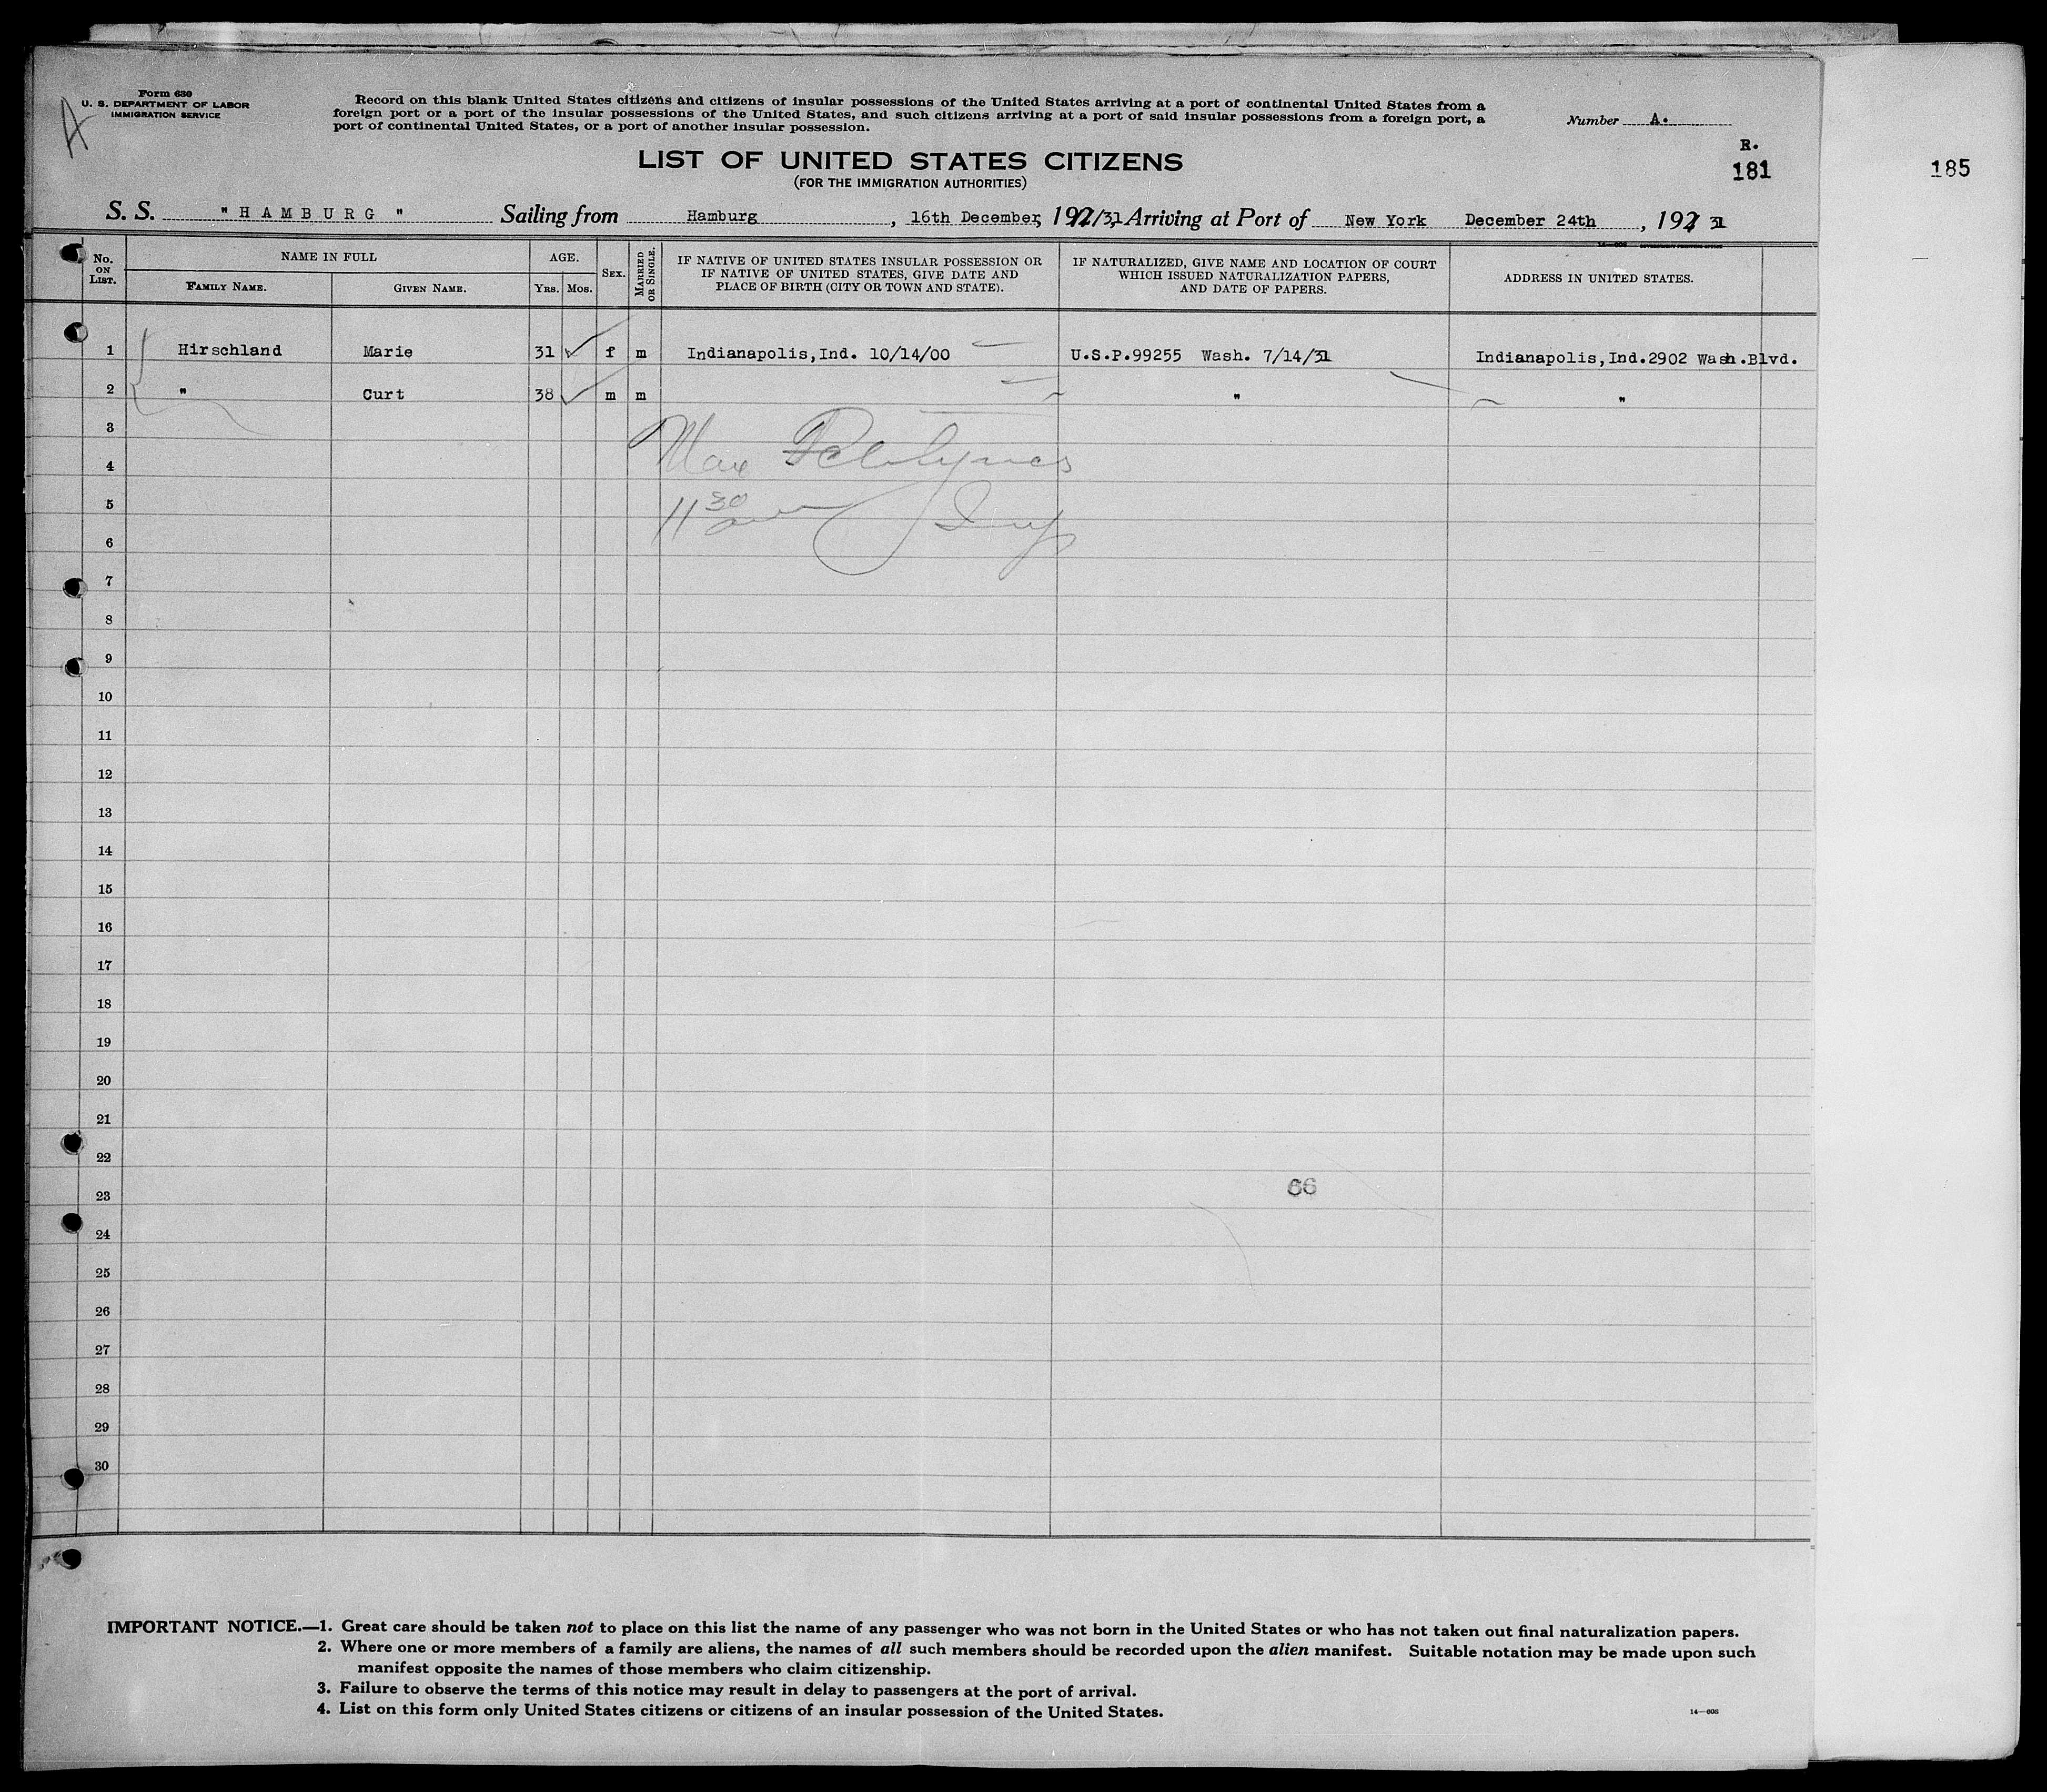 Form 630
U. S. DEPARTMENT OF LABOR
IMMIGRATION SERVICE
A
Record on this blank United States citizens and citizens of insular possessions of the United States arriving at a port of continental United States from a
foreign port or a port of the insular possessions of the United States, and such citizens arriving at a port of said insular possessions from a foreign port, a
port of continental United States, or a port of another insular possession.
Number A.
R.
181
185
LIST OF UNITED STATES CITIZENS
(FOR THE IMMIGRATION AUTHORITIES)
S. S. "HAMBURG" Sailing from Hamburg, 16th December, 192/31, Arriving at Port of New York December 24th, 192 31
No. ON LIST.
NAME IN FULL
FAMILY NAME.
GIVEN NAME.
AGE.
YRS. MOS.
SEX.
MARRIED OR SINGLE.
IF NATIVE OF UNITED STATES INSULAR POSSESSION OR
IF NATIVE OF UNITED STATES, GIVE DATE AND
PLACE OF BIRTH (CITY OR TOWN AND STATE).
IF NATURALIZED, GIVE NAME AND LOCATION OF COURT
WHICH ISSUED NATURALIZATION PAPERS,
AND DATE OF PAPERS.
ADDRESS IN UNITED STATES.
1 Hirschland Marie 31 f m Indianapolis,Ind. 10/14/00 U.S.P.99255 Wash. 7/14/31 Indianapolis,Ind.2902 Wash.Blvd.
2 " Curt 38 m m " "
3
Max
4
5
11 30
6
Insp
7
8
9
10
11
12
13
14
15
16
17
18
19
20
21
22
23
66
24
25
26
27
28
29
30
IMPORTANT NOTICE.—1. Great care should be taken not to place on this list the name of any passenger who was not born in the United States or who has not taken out final naturalization papers.
2. Where one or more members of a family are aliens, the names of all such members should be recorded upon the alien manifest. Suitable notation may be made upon such
manifest opposite the names of those members who claim citizenship.
3. Failure to observe the terms of this notice may result in delay to passengers at the port of arrival.
4. List on this form only United States citizens or citizens of an insular possession of the United States.
14—608